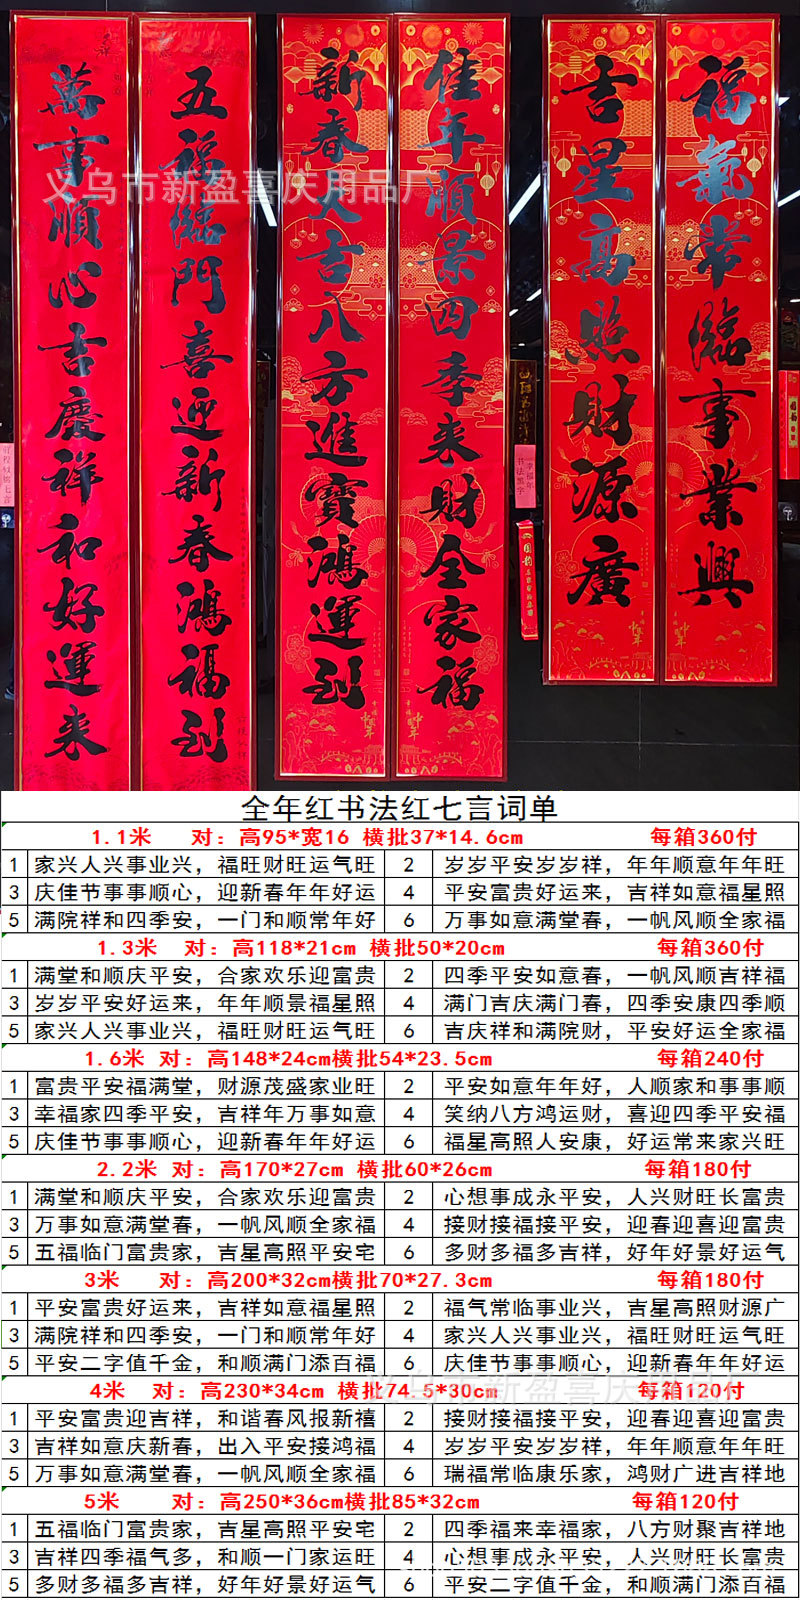 萬事順心吉慶祥和好運来
五福臨門喜迎新春鴻福到
新春大吉八方進寶鴻運到
佳年順景四季来财全家福
吉星高照财源廣
福氣常臨事業興
义乌市新盈喜庆用品厂
全年红书法红七言词单
1.1米 对：高95*宽16 横批37*14.6cm 每箱360付
1 家兴人兴事业兴，福旺财旺运气旺 2 岁岁平安岁岁祥，年年顺意年年旺
3 庆佳节事事顺心，迎新春年年好运 4 平安富贵好运来，吉祥如意福星照
5 满院祥和四季安，一门和顺常年好 6 万事如意满堂春，一帆风顺全家福
1.3米 对：高118*21cm 横批50*20cm 每箱360付
1 满堂和顺庆平安，合家欢乐迎富贵 2 四季平安如意春，一帆风顺吉祥福
3 岁岁平安好运来，年年顺景福星照 4 满门吉庆满门春，四季安康四季顺
5 家兴人兴事业兴，福旺财旺运气旺 6 吉庆祥和满院财，平安好运全家福
1.6米 对：高148*24cm横批54*23.5cm 每箱240付
1 富贵平安福满堂，财源茂盛家业旺 2 平安如意年年好，人顺家和事事顺
3 幸福家四季平安，吉祥年万事如意 4 笑纳八方鸿运财，喜迎四季平安福
5 庆佳节事事顺心，迎新春年年好运 6 福星高照人安康，好运常来家兴旺
2.2米 对：高170*27cm 横批60*26cm 每箱180付
1 满堂和顺庆平安，合家欢乐迎富贵 2 心想事成永平安，人兴财旺长富贵
3 万事如意满堂春，一帆风顺全家福 4 接财接福接平安，迎春迎喜迎富贵
5 五福临门富贵家，吉星高照平安宅 6 多财多福多吉祥，好年好景好运气
3米 对：高200*32cm横批70*27.3cm 每箱180付
1 平安富贵好运来，吉祥如意福星照 2 福气常临事业兴，吉星高照财源广
3 满院祥和四季安，一门和顺常年好 4 家兴人兴事业兴，福旺财旺运气旺
5 平安二字值千金，和顺满门添百福 6 庆佳节事事顺心，迎新春年年好运
义乌市新盈喜庆用品厂
4米 对：高230*34cm 横批74.5*30cm 每箱120付
1 平安富贵迎吉祥，和谐春风报新禧 2 接财接福接平安，迎春迎喜迎富贵
3 吉祥如意庆新春，出入平安接鸿福 4 岁岁平安岁岁祥，年年顺意年年旺
5 万事如意满堂春，一帆风顺全家福 6 瑞福常临康乐家，鸿财广进吉祥地
5米 对：高250*36cm横批85*32cm 每箱120付
1 五福临门富贵家，吉星高照平安宅 2 四季福来幸福家，八方财聚吉祥地
3 吉祥四季福气多，和顺一门家运旺 4 心想事成永平安，人兴财旺长富贵
5 多财多福多吉祥，好年好景好运气 6 平安二字值千金，和顺满门添百福